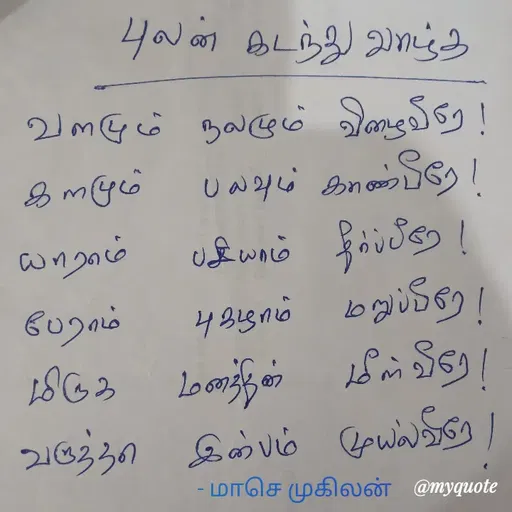 புலன் கடந்து வாழ்க
வளமும் நலமும் விழைவீரே!
களமும் பலவும் காண்பீரே!
யாராம் பசியாம் தீர்ப்பீரே!
பேராம் புகழாம் மறுப்பீரே!
மிருக மனத்தின் மீள்வீரே!
வருத்தா இன்பம் முயல்வீரே!
- மாசெ முகிலன் @myquote